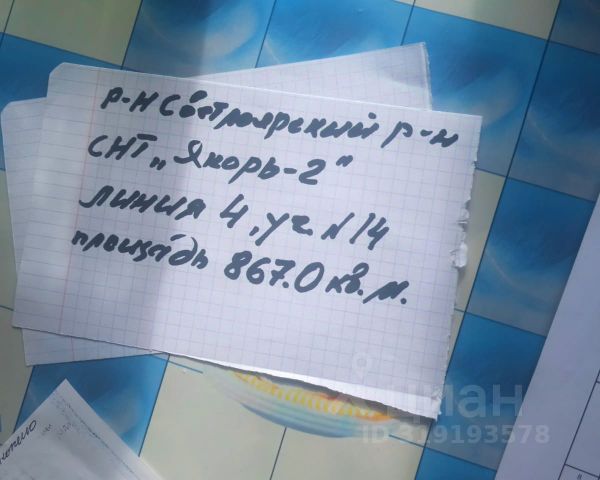 р-н Светлоярский р-н
СНТ „Якорь-2"
линия 4, уч N 14
площадь 867.0 кв. м.
циан
ID 319193578